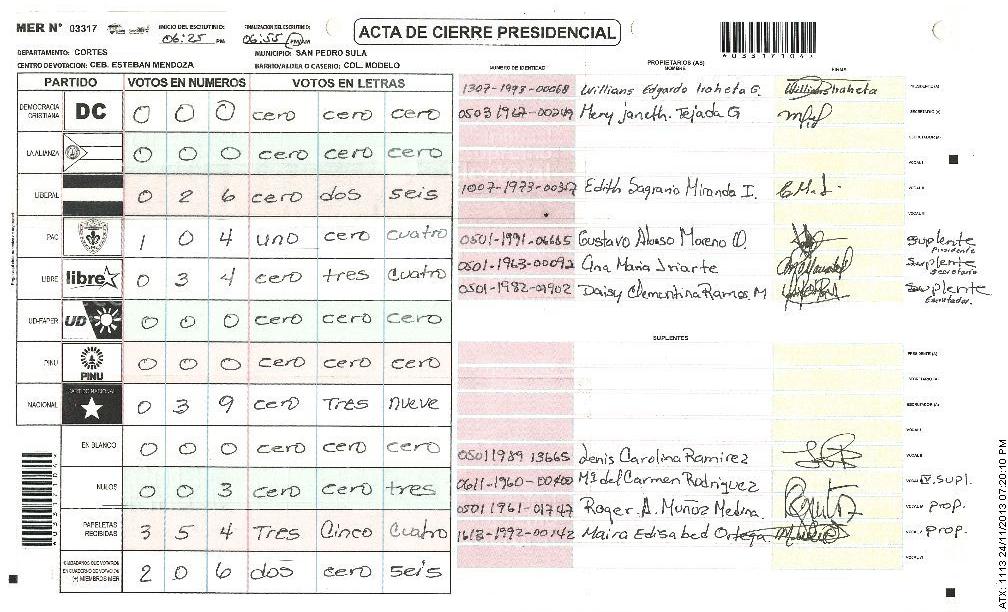 MER N° 03317
INICIO DEL ESCRUTINIO: 06:25 PM
FINALIZACION DEL ESCRUTINIO: 06:55 PM
ACTA DE CIERRE PRESIDENCIAL
DEPARTAMENTO: CORTES
MUNICIPIO: SAN PEDRO SULA
CENTRO DE VOTACION: CEB. ESTEBAN MENDOZA
BARRIO/ALDEA O CASERIO: COL. MODELO
PARTIDO VOTOS EN NUMEROS VOTOS EN LETRAS
DEMOCRACIA CRISTIANA DC 0 0 0 cero cero cero
LA ALIANZA 0 0 0 cero cero cero
LIBERAL 0 2 6 cero dos seis
PAC 1 0 4 uno cero cuatro
LIBRE libre 0 3 4 cero tres cuatro
UD-FAPER UD 0 0 0 cero cero cero
PINU PINU 0 0 0 cero cero cero
NACIONAL 0 3 9 cero Tres nueve
EN BLANCO 0 0 0 cero cero cero
NULOS 0 0 3 cero cero tres
PAPELETAS RECIBIDAS 3 5 4 Tres Cinco cuatro
CIUDADANOS QUE VOTARON EN CUADERNO DE VOTACION (+) MIEMBROS MER 2 0 6 dos cero seis
NUMERO DE IDENTIDAD PROPIETARIOS (AS) NOMBRE FIRMA
1307-1993-00068 Willians Edgardo Iraheta G.
0503 1967-00249 Mery janeth. Tejada G SECRETARIO (A)
ESCRUTADOR (A)
VOCAL I
1007-1973-00317 Edith Sagrario Miranda I. VOCAL II
VOCAL III
0501-1991-06665 Gustavo Alonso Moreno O. Suplente Presidente
0501-1963-00092 Ana Maria Iriarte Suplente Secretario
0501-1982-01902 Daisy Clementina Ramos M Suplente Escrutador.
SUPLENTES
PRESIDENTE (A)
SECRETARIO (A)
ESCRUTADOR (A)
VOCAL I
0501 1989 13665 Denis Carolina Ramirez VOCAL II
0611-1960-00400 Mª del Carmen Rodriguez IV. Supl.
0501 1961-01747 Roger A. Muñoz Medina prop.
1613-1992-00142 Maira Edisabed Ortega prop.
ATX: 1113 24/11/2013 07:20:10 PM